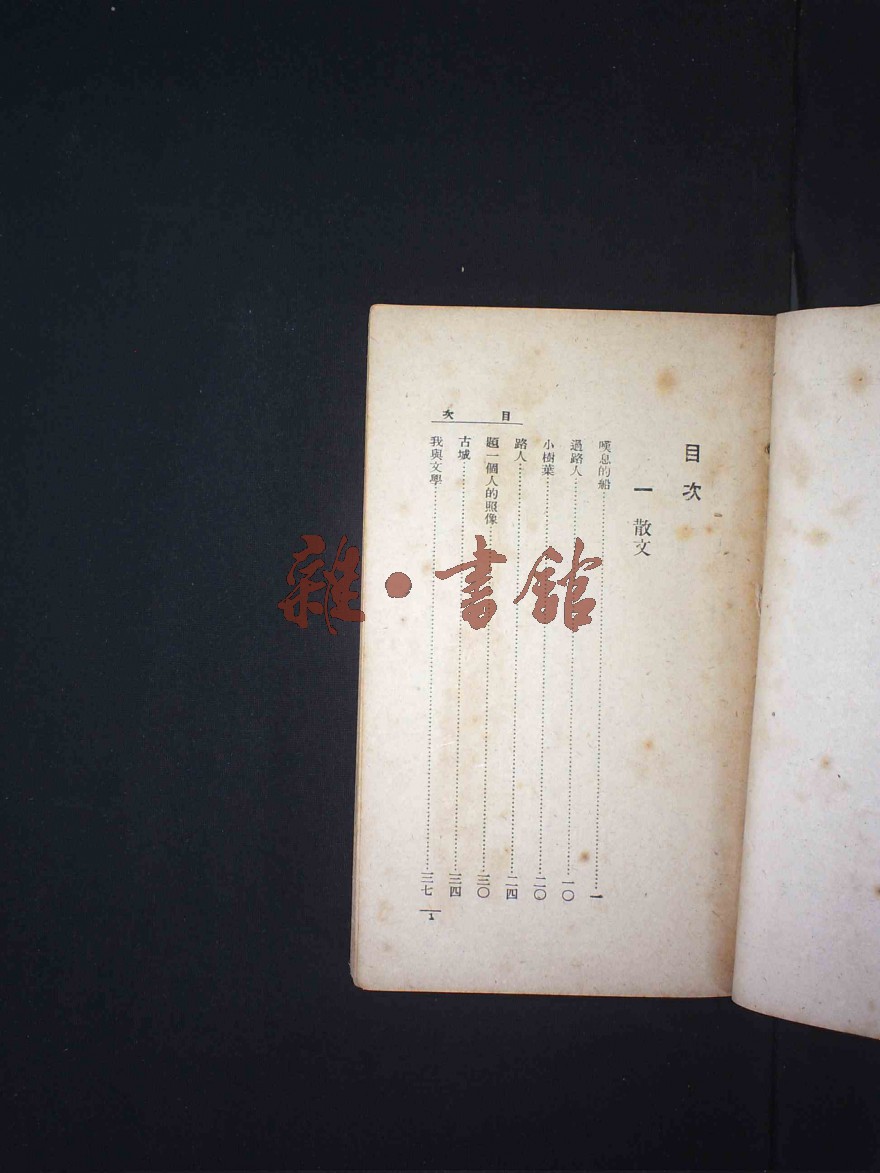 目次
一 散文
嘆息的船……一
過路人……一〇
小樹葉……二〇
路人……二四
題一個人的照像……三〇
古城……三四
我與文學……三七
目 次
1
雜·書館